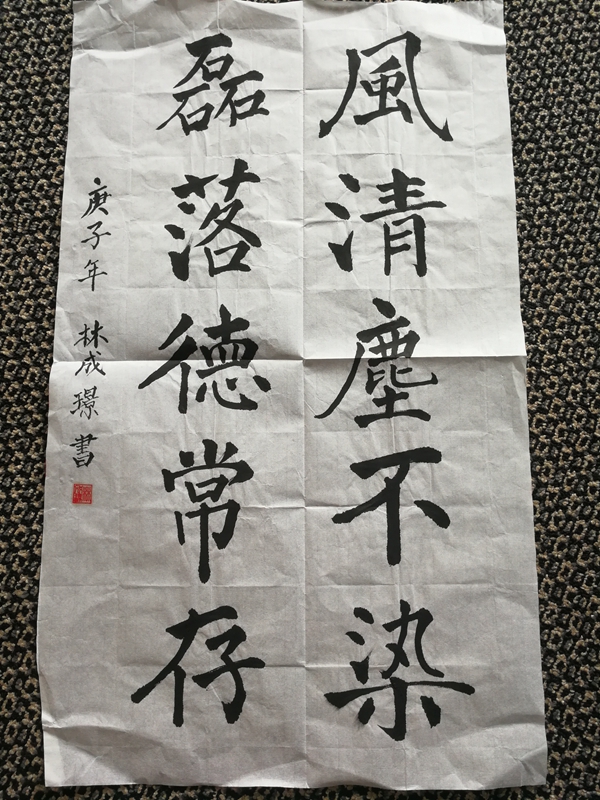 風清塵不染
磊落德常存
庚子年 林成璟書